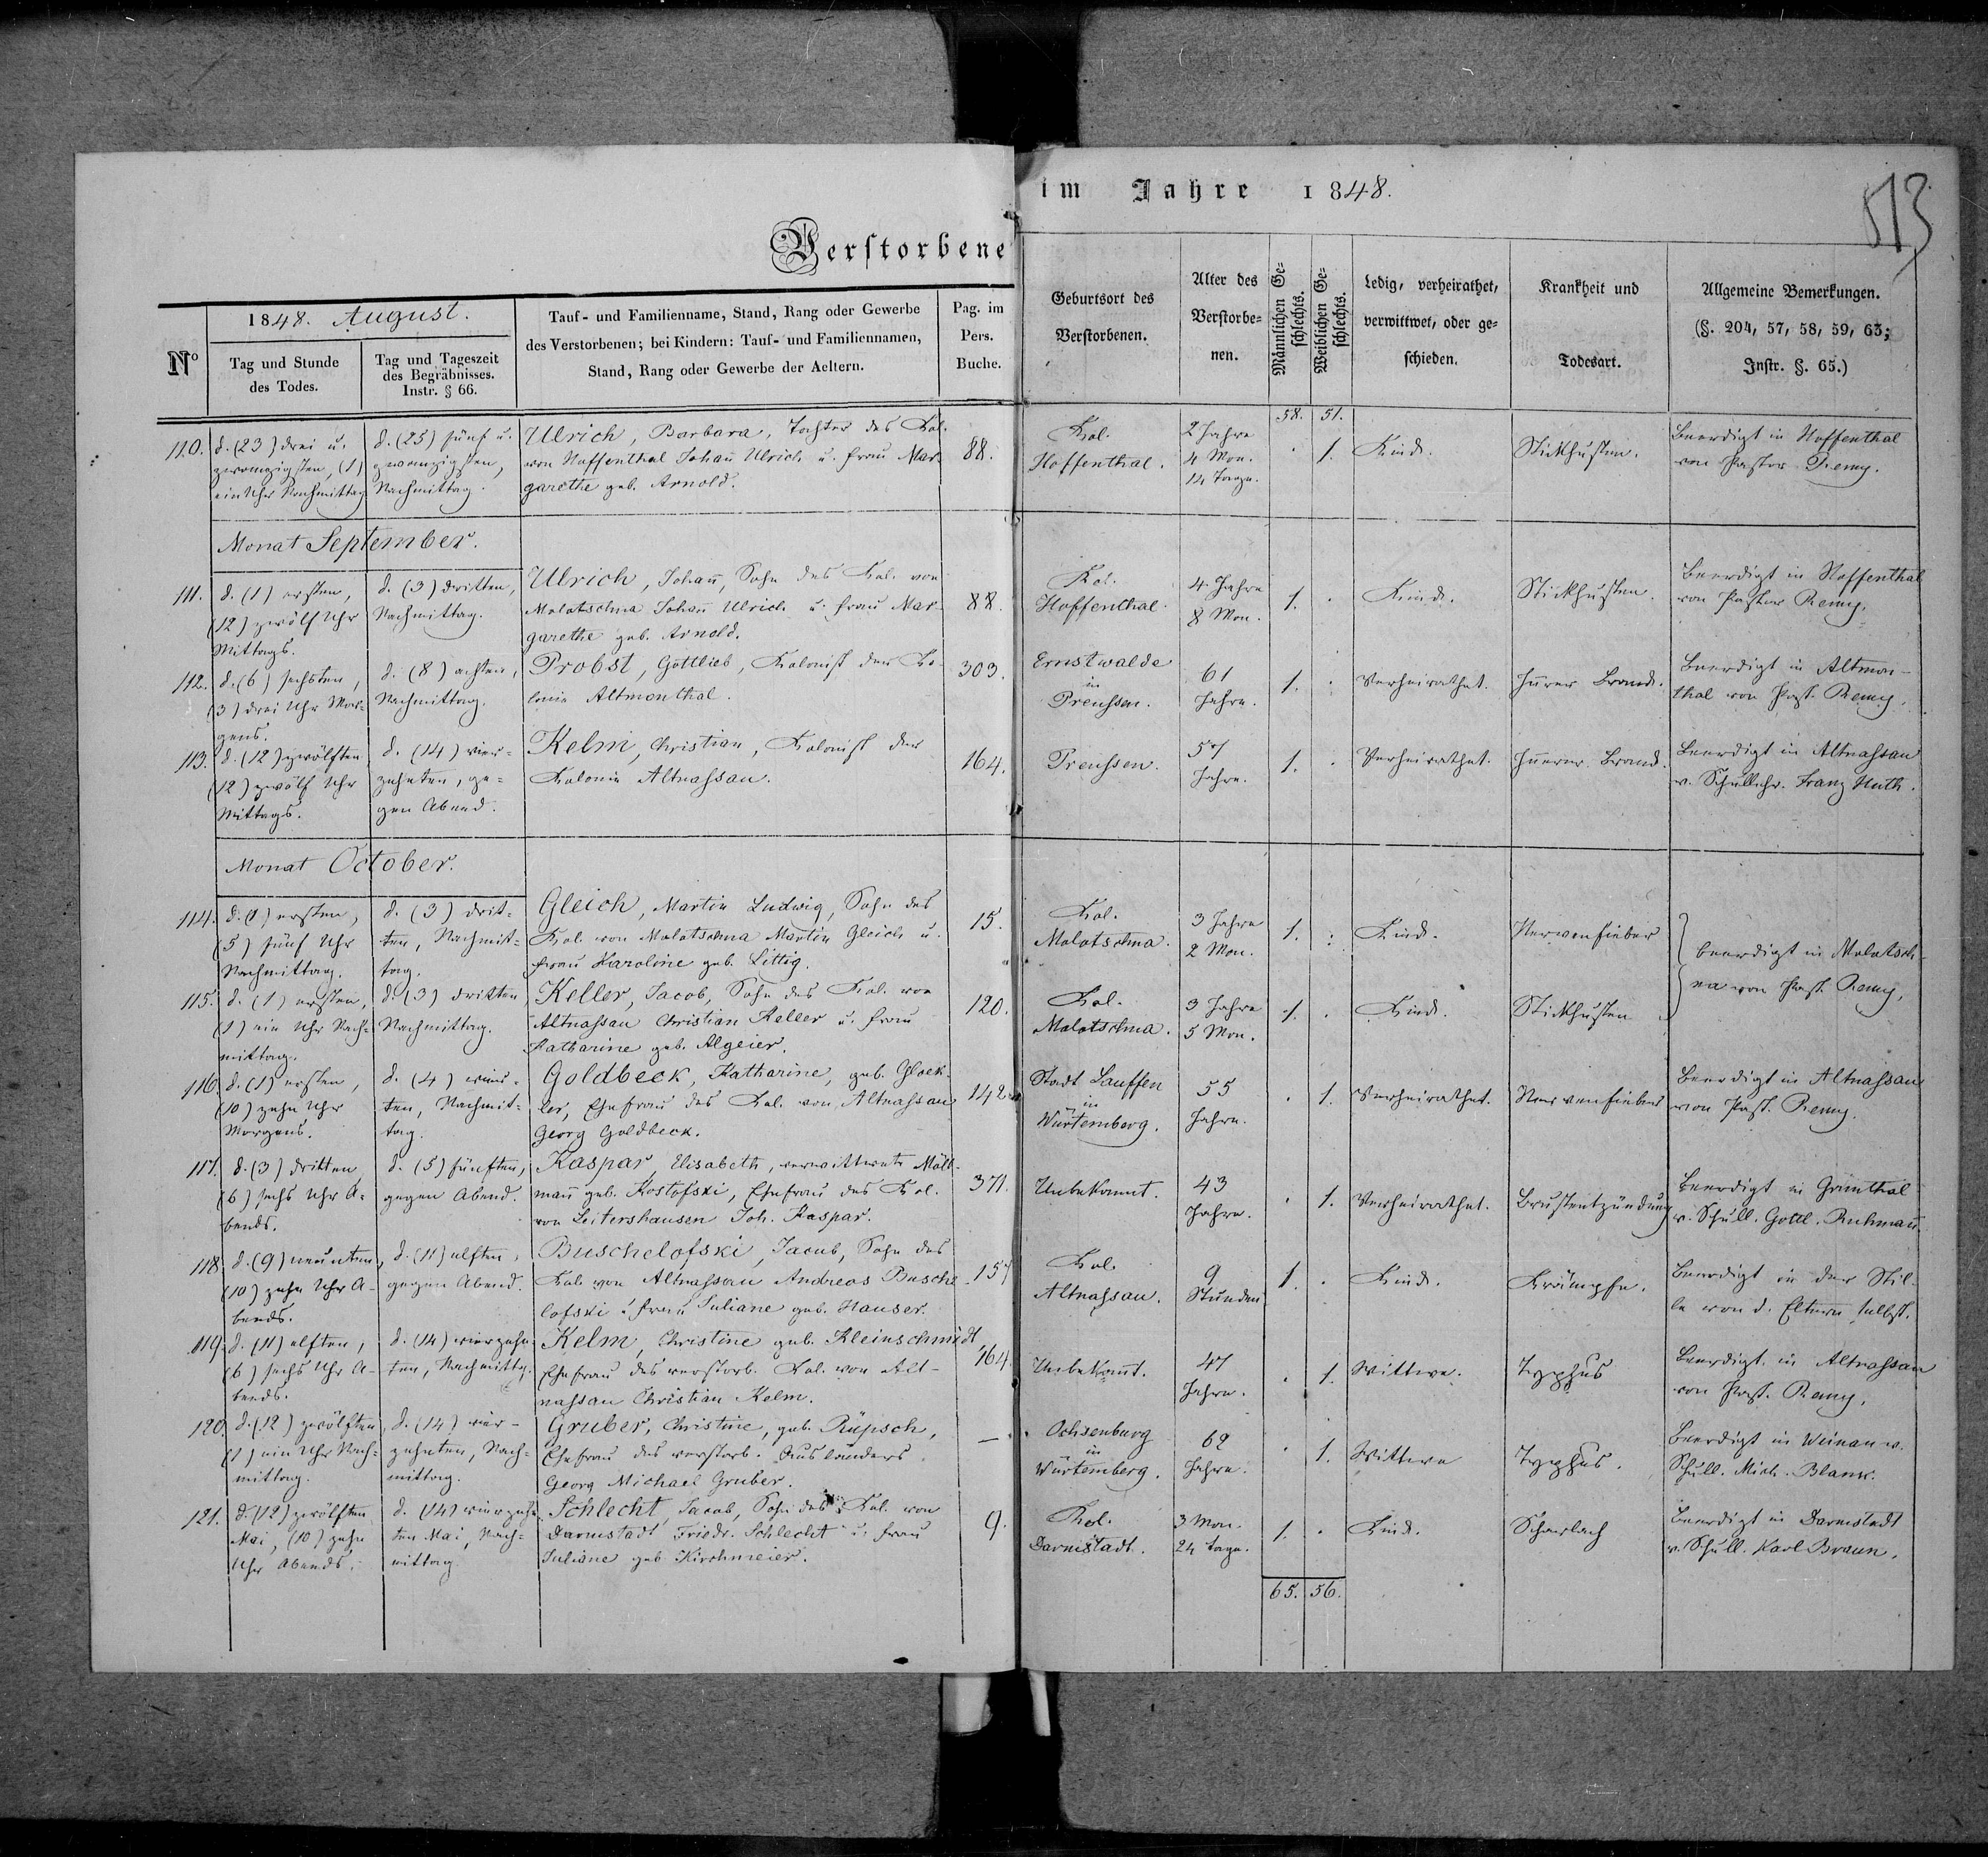 im Jahre 1848.
513
Verstorbene
No
1848. August.
Tag und Stunde
des Todes.
Tag und Tageszeit
des Begräbnisses.
Instr. § 66.
Tauf- und Familienname, Stand, Rang oder Gewerbe
des Verstorbenen; bei Kindern: Tauf- und Familiennamen,
Stand, Rang oder Gewerbe der Aeltern.
Pag. im
Pers.
Buche.
Geburtsort des
Verstorbenen.
Alter des
Verstorbe-
nen.
Männlichen Ge-
schlechts.
Weiblichen Ge-
schlechts.
Ledig, verheirathet,
verwittwet, oder ge-
schieden.
Krankheit und
Todesart.
Allgemeine Bemerkungen.
(§. 204, 57, 58, 59, 63;
Instr. §. 65.)
58. 51.
110.
d. (23) drei u.
zwanzigsten, (1)
ein Uhr Nachmittag
d. (25) fünf u.
zwanzigsten,
Nachmittag.
Ulrich, Barbara, Tochter des Kol.
von Hoffenthal Johañ Ulrich u. Frau Mar-
garethe geb. Arnold.
88.
Kol.
Hoffenthal.
2 Jahre
4 Mon.
14 Tage.
. 1.
Kind.
Stickhusten.
Beerdigt in Hoffenthal
von Pastor Remy.
Monat September.
111.
d. (1) ersten,
(12) zwölf Uhr
Mittags.
d. (3) dritten,
Nachmittag.
Ulrich, Johañ, Sohn des Kol. von
Molotschna Johañ Ulrich u. Frau Mar-
garethe geb. Arnold.
88.
Kol.
Hoffenthal.
4 Jahre
8 Mon.
1. .
Kind.
Stickhusten.
Beerdigt in Hoffenthal
von Pastor Remy.
112.
d. (6) sechsten,
(3) drei Uhr Mor-
gens.
d. (8) achten,
Nachmittag.
Probst, Gottlieb, Kolonist der Ko-
lonie Altmonthal.
303.
Ernstwalde
in
Preussen.
61
Jahre.
1. .
Verheirathet.
Innrer Brand.
Beerdigt in Altmon-
thal von Past. Remy.
113.
d. (12) zwölften
(12) zwölf Uhr
Mittags.
d. (14) vier-
zehnten, ge-
gen Abend.
Kelm, Christian, Kolonist der
Kolonie Altnassau.
164.
Preussen.
57
Jahre.
1. .
Verheirathet.
Innerer Brand.
Beerdigt in Altnassau
v. Schullehr. Franz Huth.
Monat October.
114.
d. (1) ersten,
(5) fünf Uhr
Nachmittag.
d. (3) drit-
ten, Nachmit-
tag.
Gleich, Martin Ludwig, Sohn des
Kol. von Molotschna Martin Gleich u.
Frau Karoline geb. Littig.
15.
Kol.
Molotschna.
3 Jahre
2 Mon.
1. .
Kind.
Nervenfieber
beerdigt in Molotsch-
na von Past. Remy.
115.
d. (1) ersten,
(1) ein Uhr Nach-
mittag.
d. (3) dritten
Nachmittag.
Keller, Jacob, Sohn des Kol. von
Altnassau Christian Keller u. Frau
Katharine geb. Algeier.
120.
Kol.
Molotschna.
3 Jahre
5 Mon.
1. .
Kind.
Stickhusten
116.
d. (1) ersten,
(10) zehn Uhr
Morgens.
d. (4) vier-
ten, Nachmit-
tag.
Goldbeck, Katharine, geb. Glock-
ler, Ehefrau des Kol. von Altnassau
Georg Goldbeck.
142.
Stadt Lauffen
in
Würtemberg.
55
Jahre.
. 1.
Verheirathet.
Nervenfieber
Beerdigt in Altnassau
von Past. Remy.
117.
d. (3) dritten
(6) sechs Uhr A-
bends.
d. (5) fünften,
gegen Abend.
Kaspar, Elisabeth, verwittwete Möll-
mañ geb. Kostofski, Ehefrau des Kol.
von Leitershausen Joh. Kaspar.
371.
Unbekannt.
43
Jahre.
. 1.
Verheirathet.
Brustentzündung
Beerdigt in Grünthal
v. Schull. Gottl. Ruhmañ.
118.
d. (9) neunten,
(10) zehn Uhr A-
bends.
d. (11) elften,
gegen Abend.
Buschelofski, Jacob, Sohn des
Kol. von Altnassau Andreas Busche-
lofski u. Frau Juliane geb. Hauser.
157
Kol.
Altnassau.
9
Stunden
1. .
Kind.
Krämpfe.
Beerdigt in der Stil-
le von d. Eltern selbst.
119.
d. (11) elften,
(6) sechs Uhr A-
bends.
d. (14) vierzehn-
ten, Nachmittg.
Kelm, Christine geb. Kleinschmidt,
Ehefrau des verstorb. Kol. von Alt-
nassau Christian Kelm.
164.
Unbekom̃t.
47
Jahre.
. 1.
Wittwe.
Typhus
Beerdigt in Altnassau
von Past. Remy.
120.
d. (12) zwölften
(1) ein Uhr Nach-
mittag.
d. (14) vier-
zehnten, Nach-
mittag.
Gruber, Christine, geb. Rüpsch,
Ehefrau des verstorb. Ausländers
Georg Michael Gruber.
—
Ochsenburg
in
Würtemberg.
62
Jahre.
. 1.
Wittwe
Typhus.
Beerdigt in Weinau v.
Schull. Mich. Blank.
121.
d. (12) zwölften
Mai, (10) zehn
Uhr Abends.
d. (14) vierzehn-
ten Mai, Nach-
mittag.
Schlecht, Jacob, Sohn des Kol. von
Darmstadt Friedr. Schlecht u. Frau
Juliane geb Kirchmeier.
9.
Kol.
Darmstadt.
3 Mon.
24 Tage.
1. .
Kind.
Scharlach
Beerdigt in Darmstadt
v. Schull. Karl Braun.
65. 56.